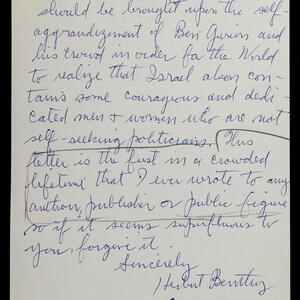 should be brought upon the self-
aggrandizement of Ben Gurion and
his crowd in order for the World
to realize that Israel also con-
tains some courageous and dedi-
cated men & women who are not
self-seeking politicians. This
letter is the first in a crowded
lifetime that I ever wrote to any
author, publisher or public figure
so if it seems superfluous to
you, forgive it.
Sincerely
Hubert